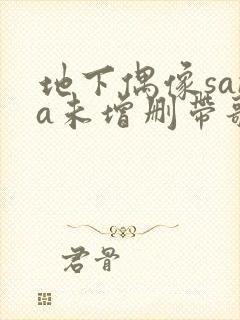 地下偶像sa
a未增删带
君骨